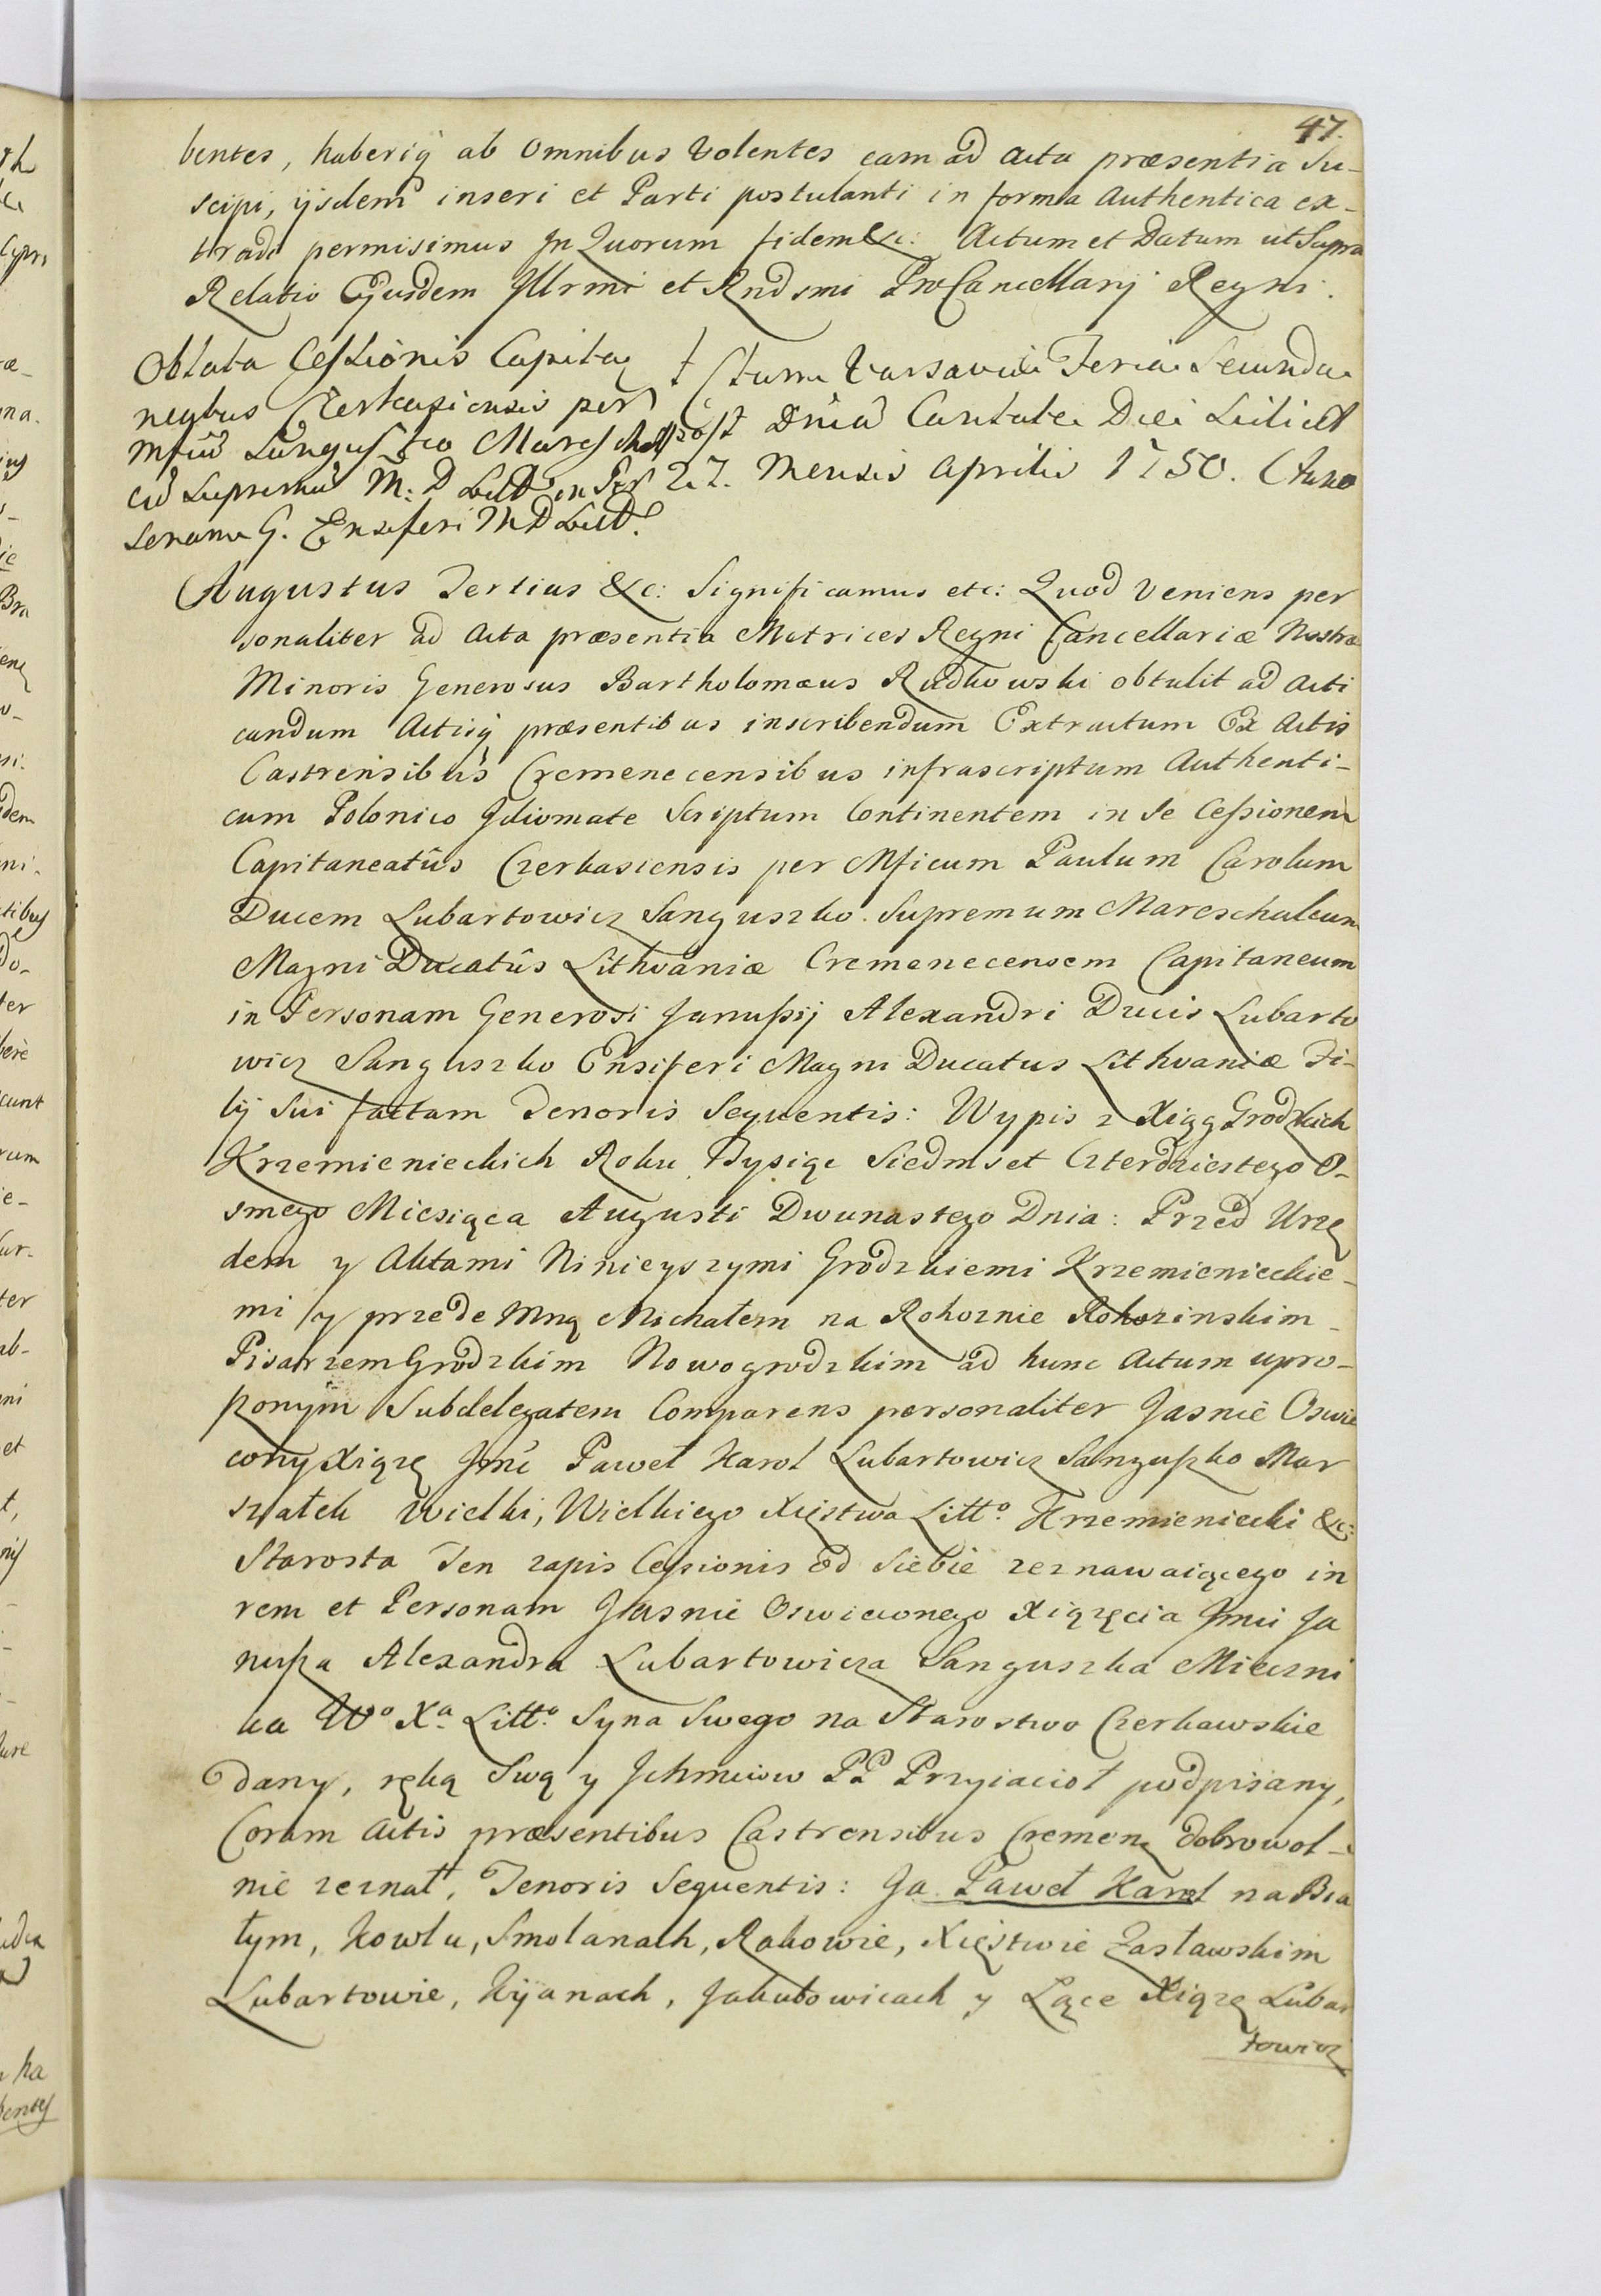 47.
bentes, haberiq ab omnibus Volentes eam ad acta præsentia Su-
scipi, ijsdem inseri et Parti postulanti in forma Authentica ex-
tradi permisimus In Quorum fidem &c: Actum et Datum ut Supra
Relatio Ejusdem Illrmi et Rndsmi ProCancellarij Regni.
Oblata Cessionis Capita
neatus Czerkasiensis per
Mficu Sangusko Mareschal
cu Supremu M: D Litt in Per
sonam G. Ensiferi M D Litt.
Actum Varsaviæ Feria Secunda
post Dnica Cantate Die Scilicet
27. Mensis Aprilis 1750. Anno
Augustus Tertius &c: Significamus etc: Quod Veniens per
sonaliter ad Acta præsentia Metrices Regni Cancellariæ Nostræ
Minoris Generosus Bartholomæus Rudkowski obtulit ad Acti
candum Actisq præsentibus inscribendum Extractum Ex Actis
Castrensibus Cremenecensibus infrascriptum Authenti-
cum Polonico Idiomate Scriptum Continentem in Se Cessionem
Capitaneatûs Czerkasiensis per Mficum Paulum Carolum
Ducem Lubartowicz Sanguszko Supremum Mareschalcum
Magni Ducatûs Lithvaniæ Cremenecensem Capitaneum
in Personam Generosi Janussij Alexandri Ducis Lubarto
wicz Sanguszko Ensiferi Magni Ducatus Lithvaniæ Fi-
lij Sui factam Tenoris Sequentis: Wypis z Xiąg Grodzkich
Krzemienieckich Roku Tysiąc Siedmset Czterdziestego O-
smego Miesiąca Augusti Dwunastego Dnia: Przed Urzę
dem y Aktami Ninieyszymi Grodzkiemi Krzemienieckie-
mi y przede Mną Michałem na Rohoznie Rohozinskim
Pisarzem Grodzkim Nowogrodzkim ad hunc Actum upro-
szonym Subdelegatem Comparens personaliter Jasnie Oswie
cony Xiążę Jmć Paweł Karol Lubartowicz Sanguszko Mar
szałek Wielki, Wielkiego Xięstwa Litto. Krzemieniecki &c:
Starosta Ten zapis Cessionis od Siebie zeznawaiącego in
rem et Personam Jasnie Oswieconego Xiążęcia Jmci Ja
nusza Alexandra Lubartowicza Sanguszka Mieczni
ka Wo Xa Litto. Syna Swego na Starostwo Czerkawskie
dany, ręką Swą y Ichmciow PP Przyiacioł podpisany,
Coram Actis præsentibus Castrensibus Cremen dobrowol-
nie zeznał, Tenoris Sequentis: Ja Paweł Karol na Bia
łym, Kowlu, Smolanach, Rakowie, Xięstwie Zasławskim
Lubartowie, Kijanach, Jakubowicach y Łące Xiążę Lubar
towicz